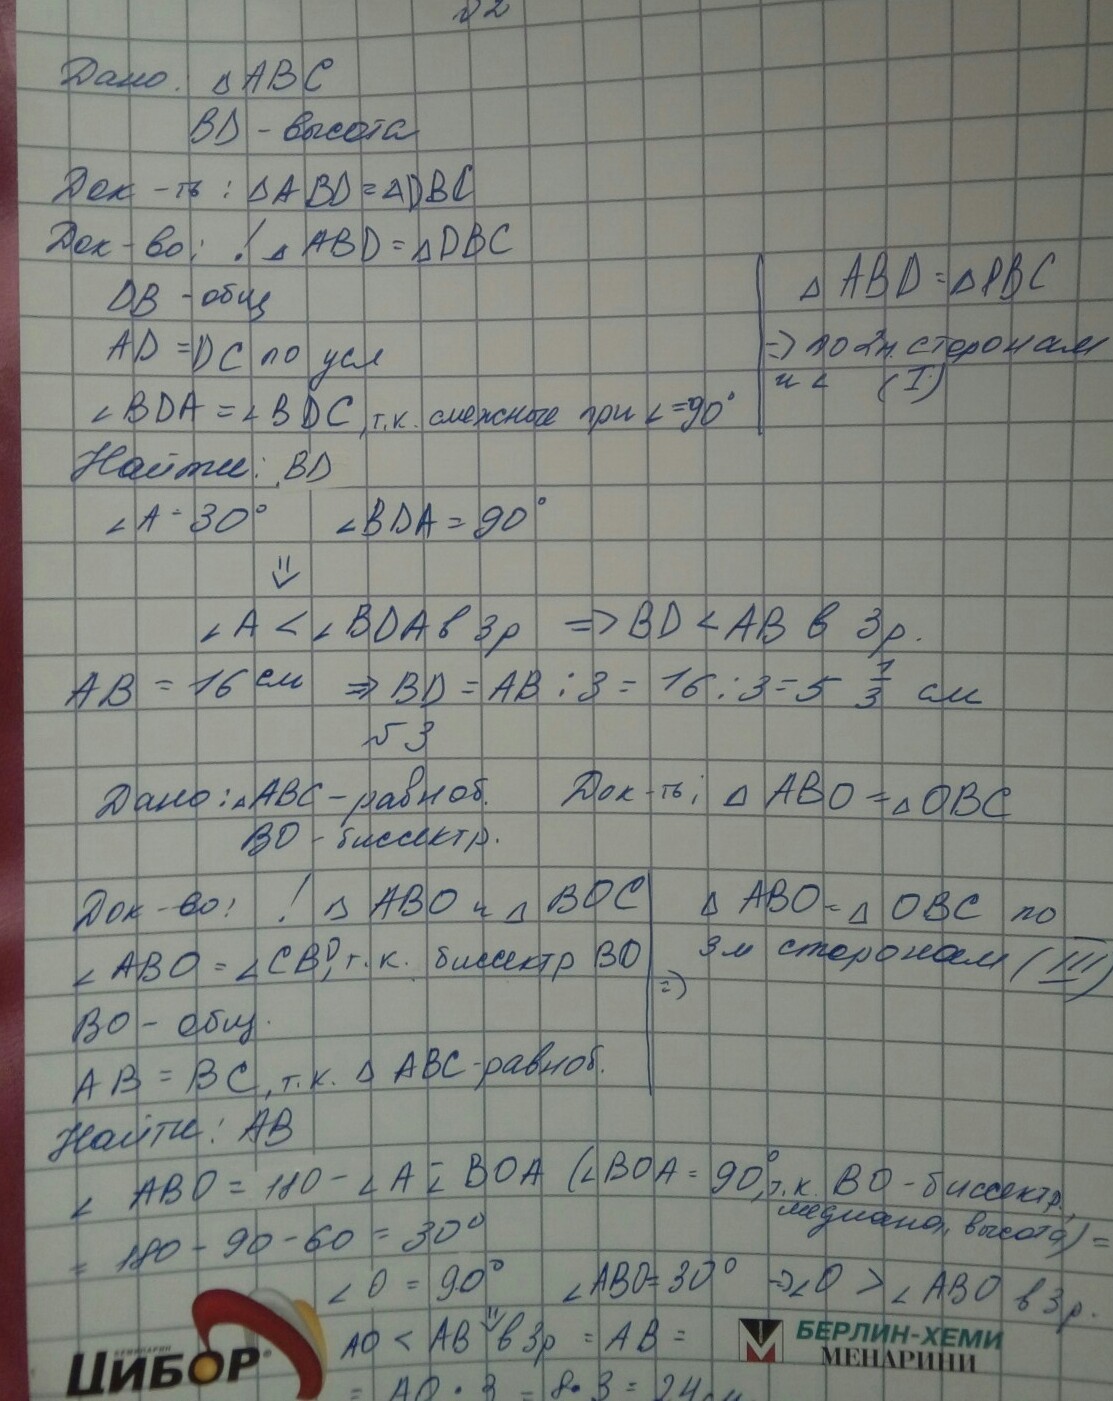 №2
Дано: △ABC
BD - высота
Док-ть: △ABD = △DBC
Док-во: ! △ABD = △DBC
DB - общ
AD = DC по усл
∠BDA = ∠BDC, т.к. смежные при ∠=90°
△ABD = △DBC
=> по 2м сторонам
и ∠ (I)
Найти: BD
∠A = 30° ∠BDA = 90°
⇓
∠A < ∠BDA в 3р => BD < AB в 3р.
AB = 16 см => BD = AB : 3 = 16 : 3 = 5 1/3 см
№3
Дано: △ABC - равноб. Док-ть: △ABO = △OBC
BO - биссектр.
Док-во: ! △ABO и △BOC
∠ABO = ∠CBO, т.к. биссектр BO
BO - общ.
AB = BC, т.к. △ABC - равноб.
=>
△ABO = △OBC по
3м сторонам (III)
Найти: AB
∠ABO = 180 - ∠A - ∠BOA (∠BOA = 90°, т.к. BO - биссектр,
медиана, высота) =
= 180 - 90 - 60 = 30°
∠O = 90° ∠ABO = 30° => ∠O > ∠ABO в 3р.
⇓
AO < AB в 3р = AB =
= AO · 3 = 8 · 3 = 24 см
СЕМИНАРИИ
ЦИБОР®
БЕРЛИН-ХЕМИ
МЕНАРИНИ